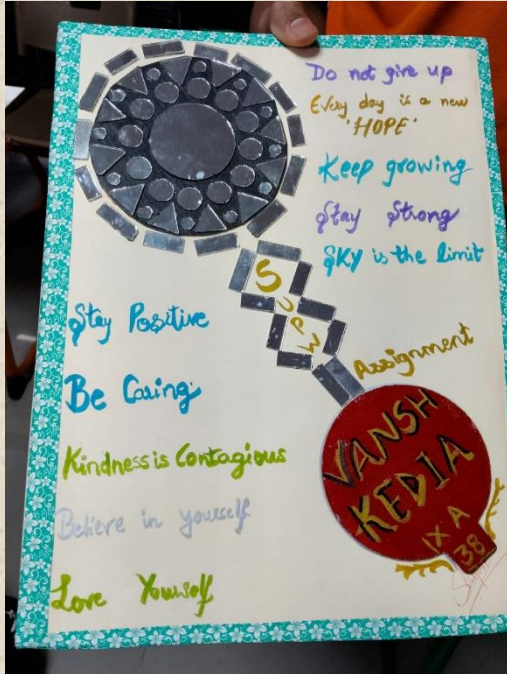 Do not give up
Every day is a new
'HOPE'
Keep growing
Stay Strong
SKY is the limit
SUPW
Assignment
Stay Positive
Be Caring
Kindness is Contagious
Believe in yourself
Love Yourself
VANSH
KEDIA
IX A
38